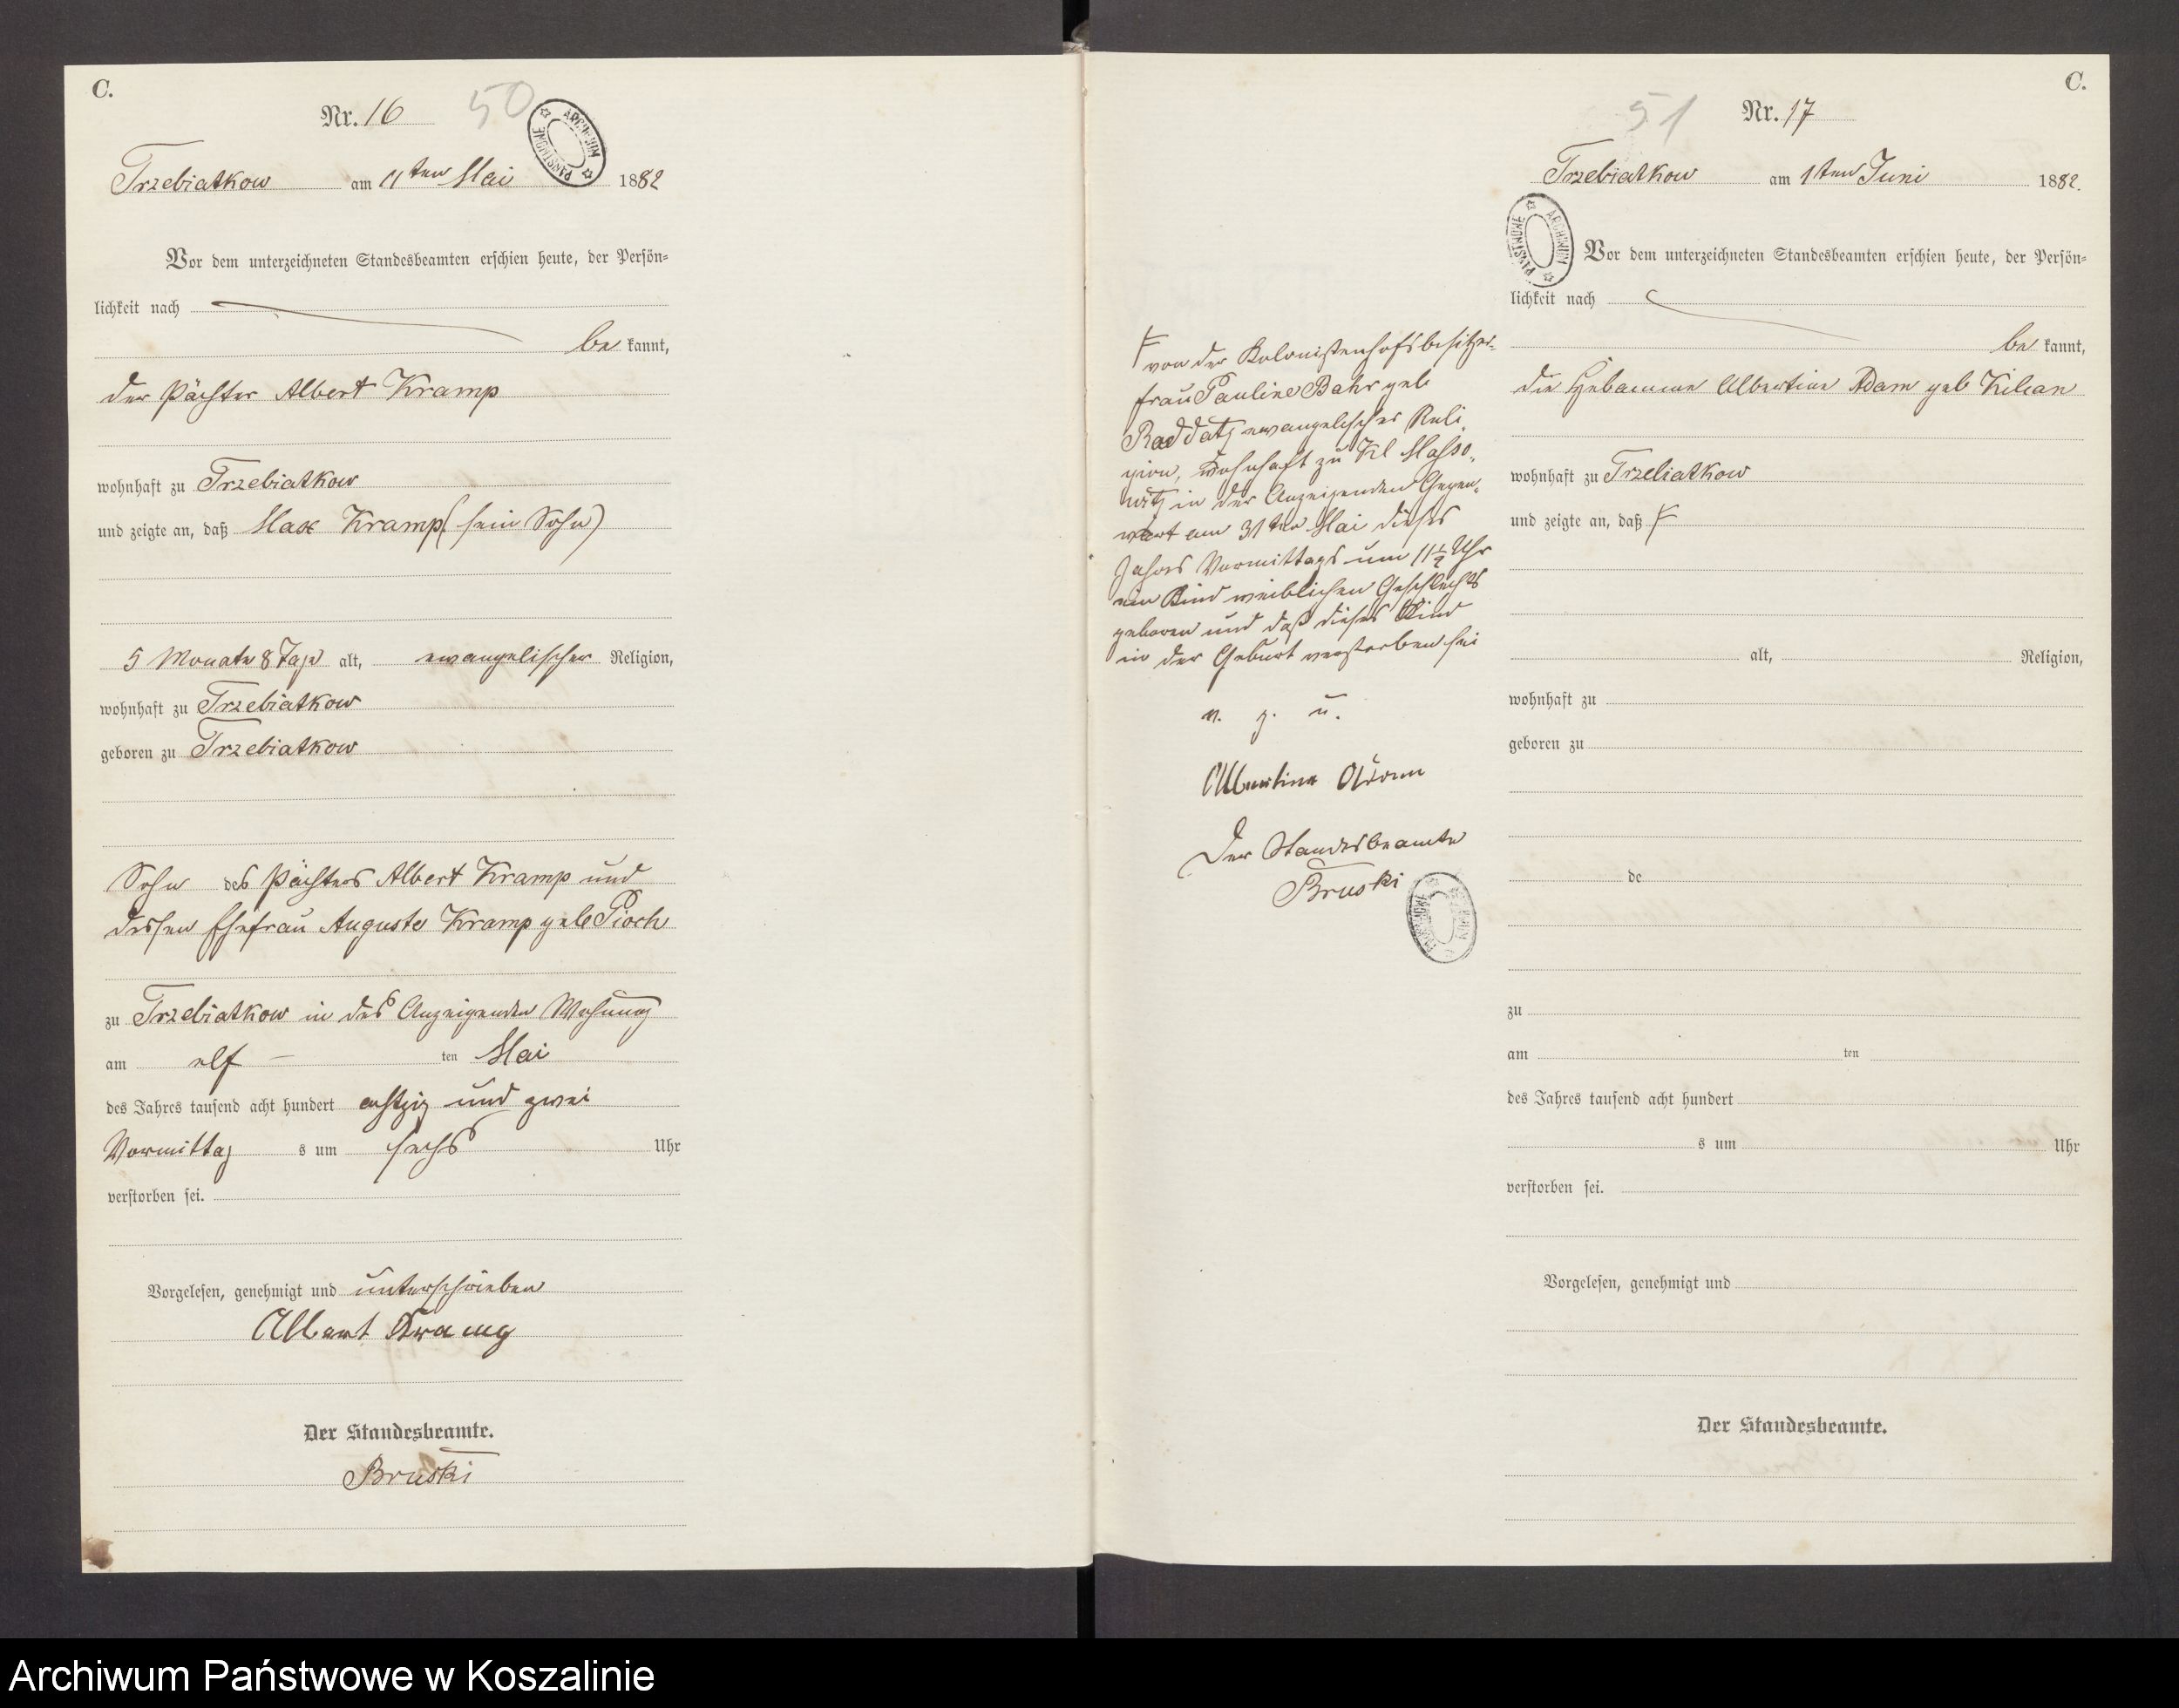 C.
Nr. 16
50
ARCHIWUM PAŃSTWOWE
Trzebiatkow am 11ten Mai 1882
Vor dem unterzeichneten Standesbeamten erschien heute, der Persön=
lichkeit nach
be kannt,
der Pächter Albert Kramp
wohnhaft zu Trzebiatkow
und zeigte an, daß Max Kramp (sein Sohn)
5 Monate 8 Tage alt, evangelischer Religion,
wohnhaft zu Trzebiatkow
geboren zu Trzebiatkow
Sohn des Pächters Albert Kramp und
dessen Ehefrau Auguste Kramp geb Pioch
zu Trzebiatkow in des Anzeigenden Wohnung
am elf ten Mai
des Jahres tausend acht hundert achtzig und zwei
Vormittag s um sechs Uhr
verstorben sei.
Vorgelesen, genehmigt und unterschrieben
Albert Kramp
Der Standesbeamte.
Bruski
C.
51
Nr. 17
Trzebiatkow am 1ten Juni 1882.
ARCHIWUM PAŃSTWOWE
Vor dem unterzeichneten Standesbeamten erschien heute, der Persön=
lichkeit nach
be kannt,
die Hebamme Albertine Adam geb Kilian
wohnhaft zu Trzebiatkow
und zeigte an, daß F
alt, Religion,
wohnhaft zu
geboren zu
de
zu
am ten
des Jahres tausend acht hundert
s um Uhr
verstorben sei.
Vorgelesen, genehmigt und
Der Standesbeamte.
F
von der Kolonistenhofsbesitzer=
frau Pauline Bahr geb
Raddatz evangelischer Reli,
gion, wohnhaft zu Kl Masso,
witz in der Anzeigenden Gegen,
wart am 31ten Mai dieses
Jahres Vormittags um 11½ Uhr
ein Kind weiblichen Geschlechts
geboren und daß dieses Kind
in der Geburt verstorben sei
v. g. u.
Albertine Adam
Der Standesbeamte
Bruski
ARCHIWUM PAŃSTWOWE
Archiwum Państwowe w Koszalinie